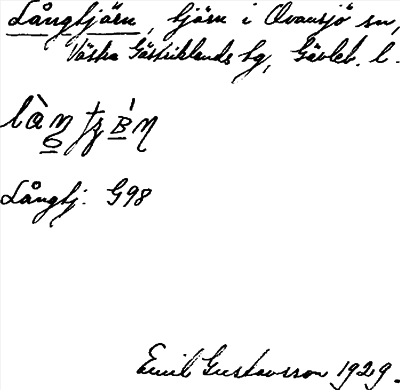 Långtjärn, tjärn i Ovansjö sn,
Västra Gästriklands tg, Gävleb. l.
Långtj: G98
Emil Gustavsson 1929.